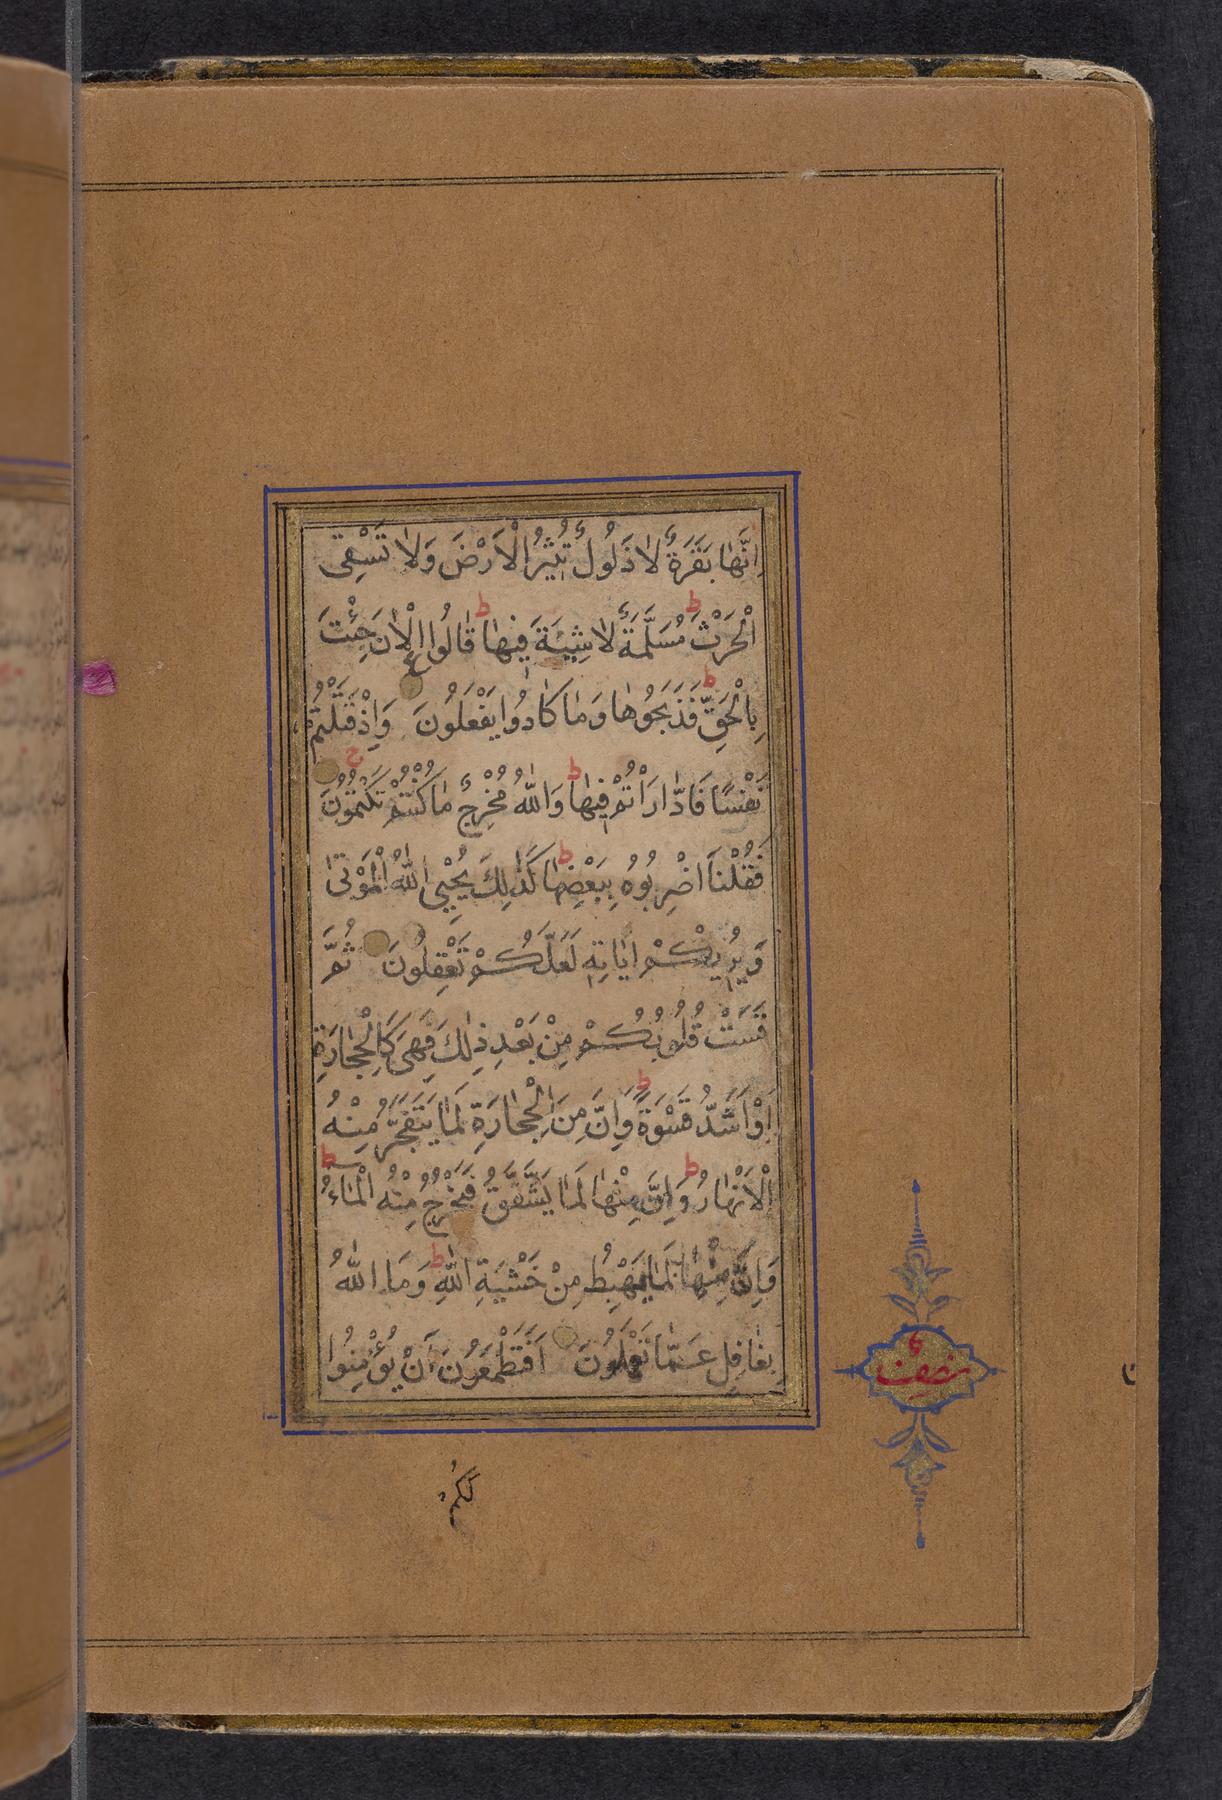 اِنَّهٰا بَقَرَةٌ لٰا ذَلُولٌ تُثٖيرُ الْاَرْضَ وَلٰا تَسْقِى
الْحَرْثَ ط مُسَلَّمَةٌ لٰا شِيَةَ فٖيهٰا ط قٰالُوا الْاٰنَ جِئْتَ
بِالْحَقِّ ط فَذَبَحُوهٰا وَمٰا كٰادُوا يَفْعَلُونَ ع وَاِذْ قَتَلْتُمْ
نَفْسًا فَادّٰارَأْتُمْ فٖيهٰا ط وَاللّٰهُ مُخْرِجٌ مٰا كُنْتُمْ تَكْتُمُونَ ج
فَقُلْنَا اضْرِبُوهُ بِبَعْضِهٰا ط كَذٰلِكَ يُحْيِى اللّٰهُ الْمَوْتىٰ
وَيُرٖيكُمْ اٰيٰاتِهٖ لَعَلَّكُمْ تَعْقِلُونَ ثُمَّ
قَسَتْ قُلُوبُكُمْ مِنْ بَعْدِ ذٰلِكَ فَهِىَ كَالْحِجٰارَةِ
اَوْ اَشَدُّ قَسْوَةً ط وَاِنَّ مِنَ الْحِجٰارَةِ لَمٰا يَتَفَجَّرُ مِنْهُ
الْاَنْهٰارُ ط وَاِنَّ مِنْهٰا لَمٰا يَشَّقَّقُ فَيَخْرُجُ مِنْهُ الْمٰاءُ ط
وَاِنَّ مِنْهٰا لَمٰا يَهْبِطُ مِنْ خَشْيَةِ اللّٰهِ ط وَمَا اللّٰهُ
بِغٰافِلٍ عَمّٰا تَعْمَلُونَ اَفَتَطْمَعُونَ اَنْ يُؤْمِنُوا
نصف
لَكُمْ